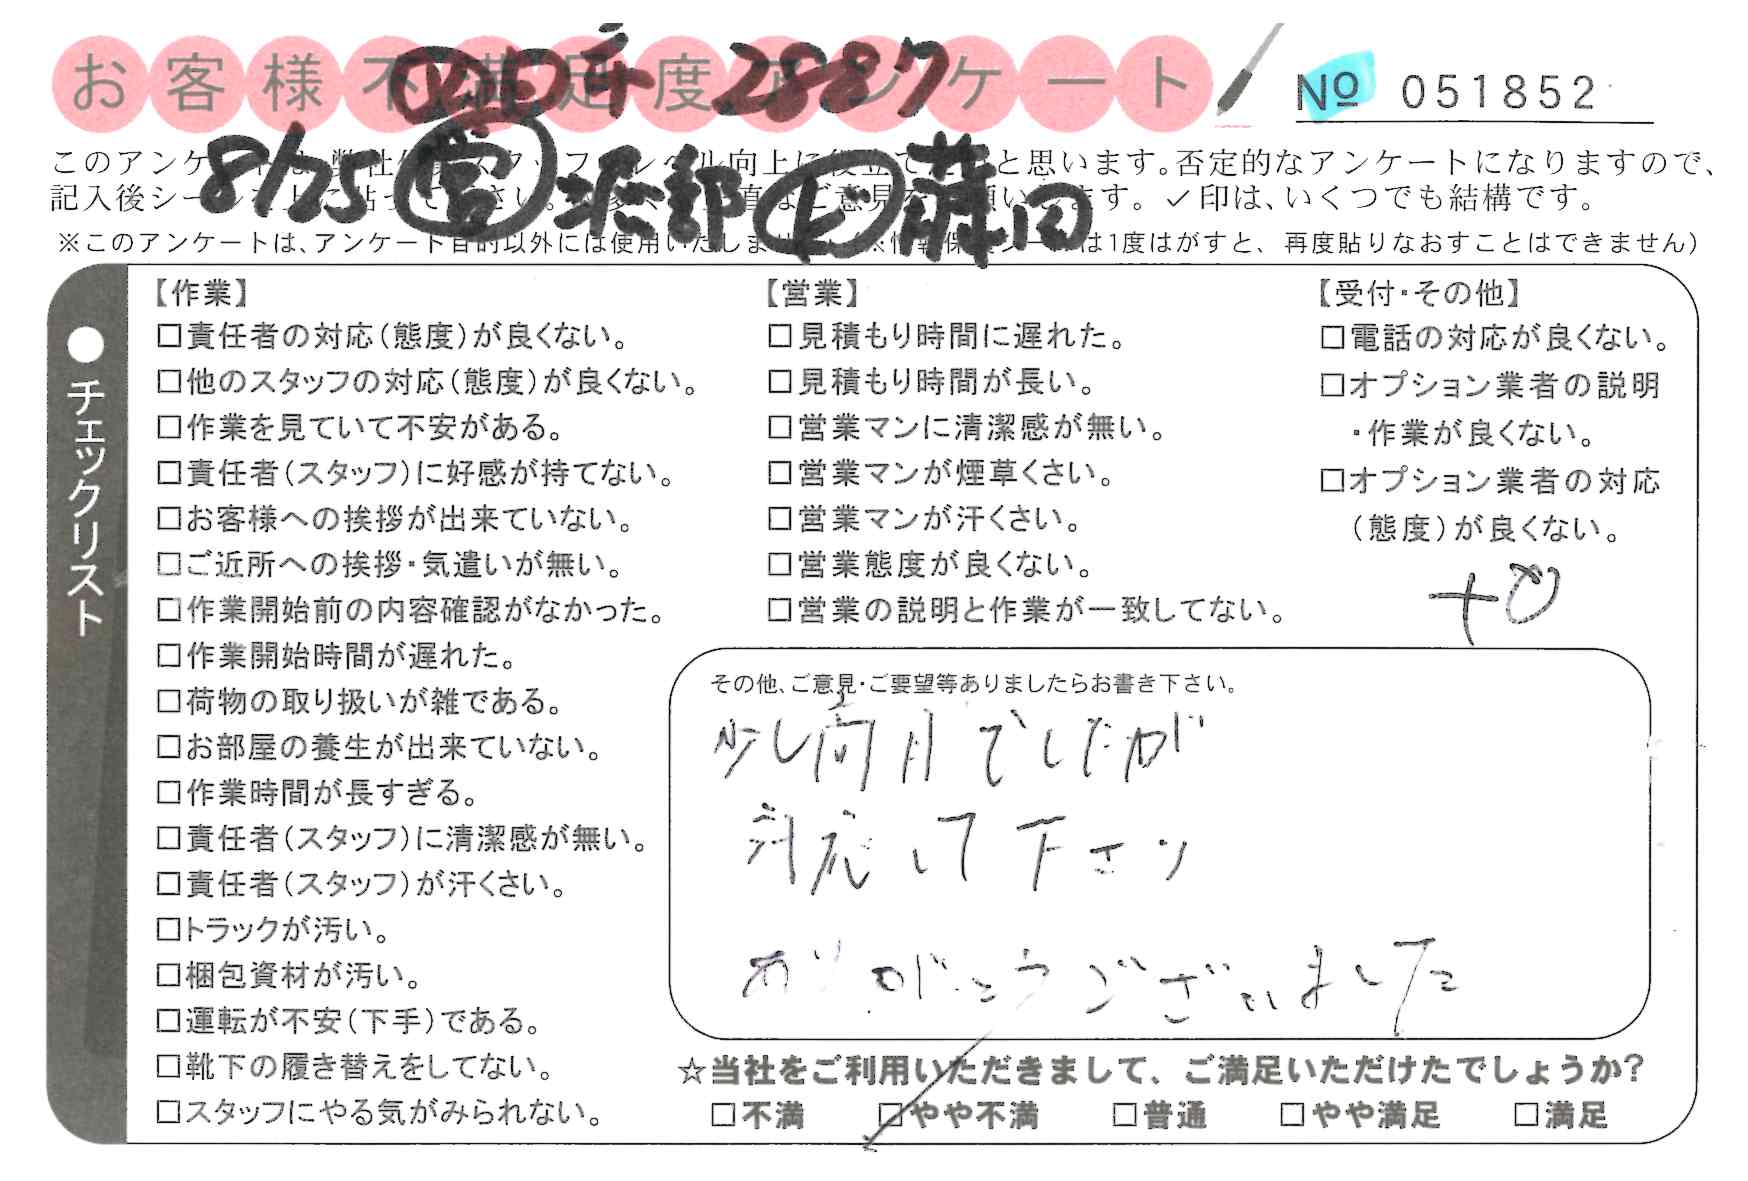 お客様不満足度アンケート
2887
№ 051852
8/25 営 服部 藤田
このアンケートは、弊社 スタッフ レベル向上に役立て と思います。否定的なアンケートになりますので、
記入後シールを上に貼って下さい。 ご意見をお願いします。✓印は、いくつでも結構です。
※このアンケートは、アンケート目的以外には使用いたしません。(※情報保護シールは1度はがすと、再度貼りなおすことはできません)
●チェックリスト
【作業】
□責任者の対応(態度)が良くない。
□他のスタッフの対応(態度)が良くない。
□作業を見ていて不安がある。
□責任者(スタッフ)に好感が持てない。
□お客様への挨拶が出来ていない。
□ご近所への挨拶・気遣いが無い。
□作業開始前の内容確認がなかった。
□作業開始時間が遅れた。
□荷物の取り扱いが雑である。
□お部屋の養生が出来ていない。
□作業時間が長すぎる。
□責任者(スタッフ)に清潔感が無い。
□責任者(スタッフ)が汗くさい。
□トラックが汚い。
□梱包資材が汚い。
□運転が不安(下手)である。
□靴下の履き替えをしてない。
□スタッフにやる気がみられない。
【営業】
□見積もり時間に遅れた。
□見積もり時間が長い。
□営業マンに清潔感が無い。
□営業マンが煙草くさい。
□営業マンが汗くさい。
□営業態度が良くない。
□営業の説明と作業が一致してない。
【受付・その他】
□電話の対応が良くない。
□オプション業者の説明
・作業が良くない。
□オプション業者の対応
(態度)が良くない。
その他、ご意見・ご要望等ありましたらお書き下さい。
少し でしたが
対応して下さり
ありがとうございました
☆当社をご利用いただきまして、ご満足いただけたでしょうか?
□不満 □やや不満 □普通 □やや満足 □満足